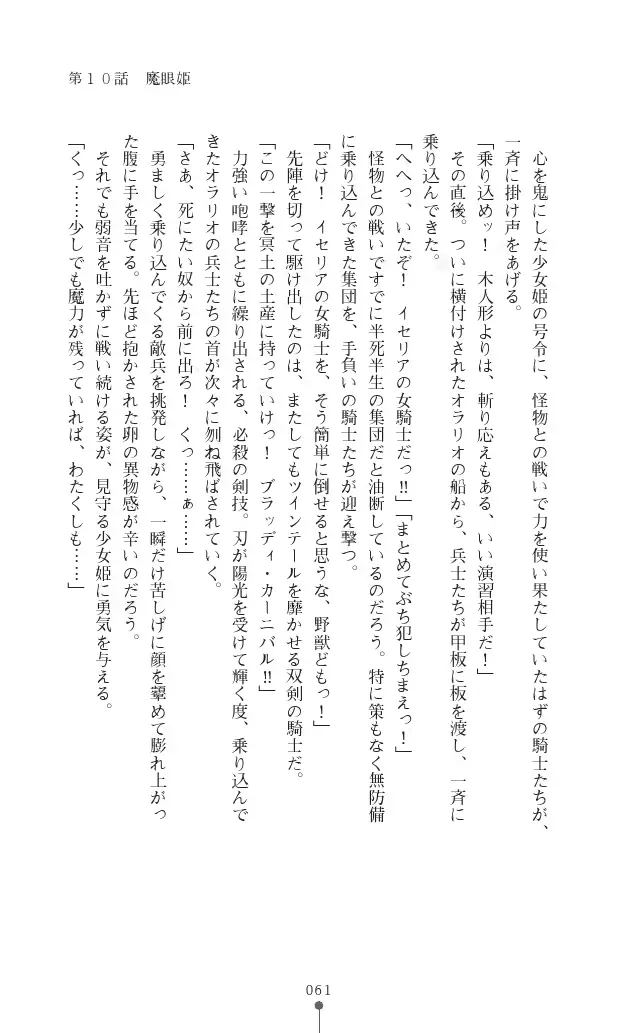 第１０話　魔眼姫
　心を鬼にした少女姫の号令に、怪物との戦いで力を使い果たしていたはずの騎士たちが、
一斉に掛け声をあげる。
「乗り込めッ！　木人形よりは、斬り応えもある、いい演習相手だ！」
　その直後。ついに横付けされたオラリオの船から、兵士たちが甲板に板を渡し、一斉に
乗り込んできた。
「へへっ、いたぞ！　イセリアの女騎士だっ‼」「まとめてぶち犯しちまえっ！」
　怪物との戦いですでに半死半生の集団だと油断しているのだろう。特に策もなく無防備
に乗り込んできた集団を、手負いの騎士たちが迎え撃つ。
「どけ！　イセリアの女騎士を、そう簡単に倒せると思うな、野獣どもっ！」
　先陣を切って駆け出したのは、またしてもツインテールを靡かせる双剣の騎士だ。
「この一撃を冥土の土産に持っていけっ！　ブラッディ・カーニバル‼」
　力強い咆哮とともに繰り出される、必殺の剣技。刃が陽光を受けて輝く度、乗り込んで
きたオラリオの兵士たちの首が次々に刎ね飛ばされていく。
「さあ、死にたい奴から前に出ろ！　くっ……ぁ……」
　勇ましく乗り込んでくる敵兵を挑発しながら、一瞬だけ苦しげに顔を顰めて膨れ上がっ
た腹に手を当てる。先ほど抱かされた卵の異物感が辛いのだろう。
　それでも弱音を吐かずに戦い続ける姿が、見守る少女姫に勇気を与える。
「くっ……少しでも魔力が残っていれば、わたくしも……」
061